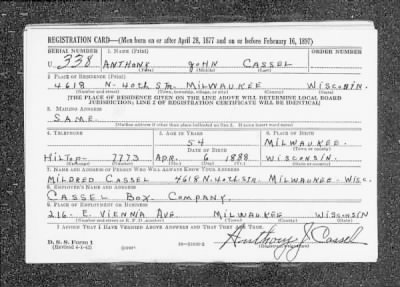 REGISTRATION CARD—(Men born on or after April 28, 1877 and on or before February 16, 1897)
SERIAL NUMBER 1. NAME (Print) ORDER NUMBER
U 338 ANTHONY JOHN CASSEL
(First) (Middle) (Last)
2. PLACE OF RESIDENCE (Print)
4618 N. 40TH STR. MILWAUKEE WISCONSIN.
(Number and street) (Town, township, village, or city) (County) (State)
[THE PLACE OF RESIDENCE GIVEN ON THE LINE ABOVE WILL DETERMINE LOCAL BOARD
JURISDICTION; LINE 2 OF REGISTRATION CERTIFICATE WILL BE IDENTICAL]
3. MAILING ADDRESS
SAME.
(Mailing address if other than place indicated on line 2. If same insert word same)
4. TELEPHONE 5. AGE IN YEARS 6. PLACE OF BIRTH
54 MILWAUKEE.
DATE OF BIRTH (Town or county)
HILTOP- 7773 APR. 6 1888 WISCONSIN.
(Exchange) (Number) (Mo.) (Day) (Yr.) (State or country)
7. NAME AND ADDRESS OF PERSON WHO WILL ALWAYS KNOW YOUR ADDRESS
MILDRED CASSEL 4618 N. 40TH STR. MILWAUKEE. WISC.
8. EMPLOYER'S NAME AND ADDRESS
CASSEL BOX COMPANY.
9. PLACE OF EMPLOYMENT OR BUSINESS
216 E. VIENNA AVE. MILWAUKEE WISCONSIN
(Number and street or R. F. D. number) (Town) (County) (State)
I AFFIRM THAT I HAVE VERIFIED ABOVE ANSWERS AND THAT THEY ARE TRUE.
D. S. S. Form 1
(Revised 4-1-42) Anthony J Cassel
(Registrant's signature)